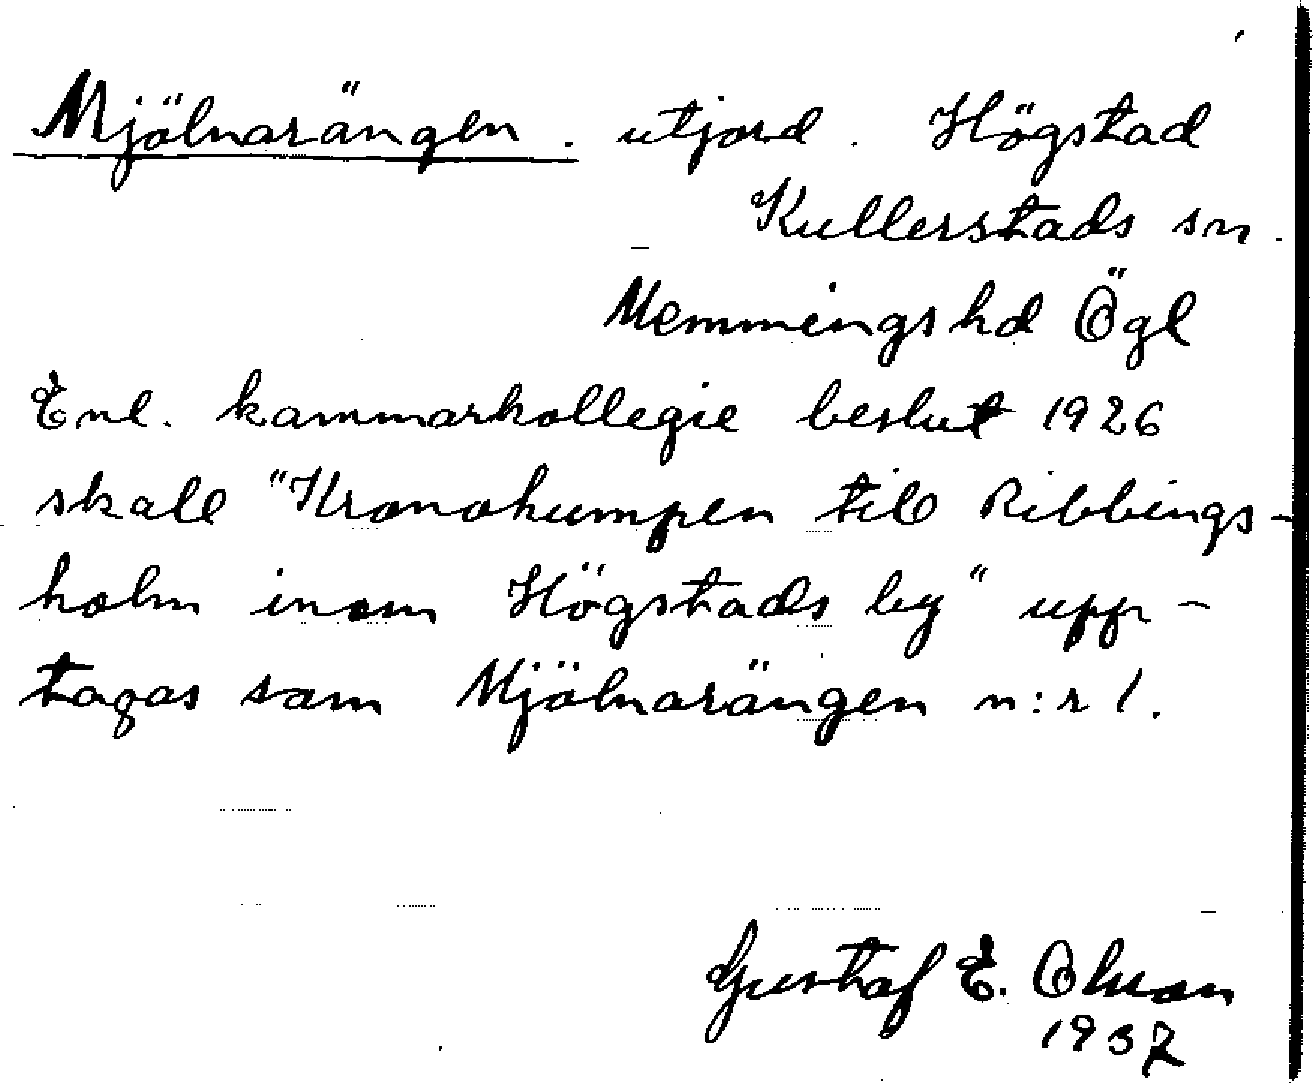 Mjölnarängen. utjord. Högstad
Kullerstads sn.
Memmingshd Ögl
Enl. kammarkollegie beslut 1926
skall "Kronohumpen till Ribbings-
holm inom Högstads by" upp-
tagas som Mjölnarängen n:r 1.
Gustaf E. Olsson
1937